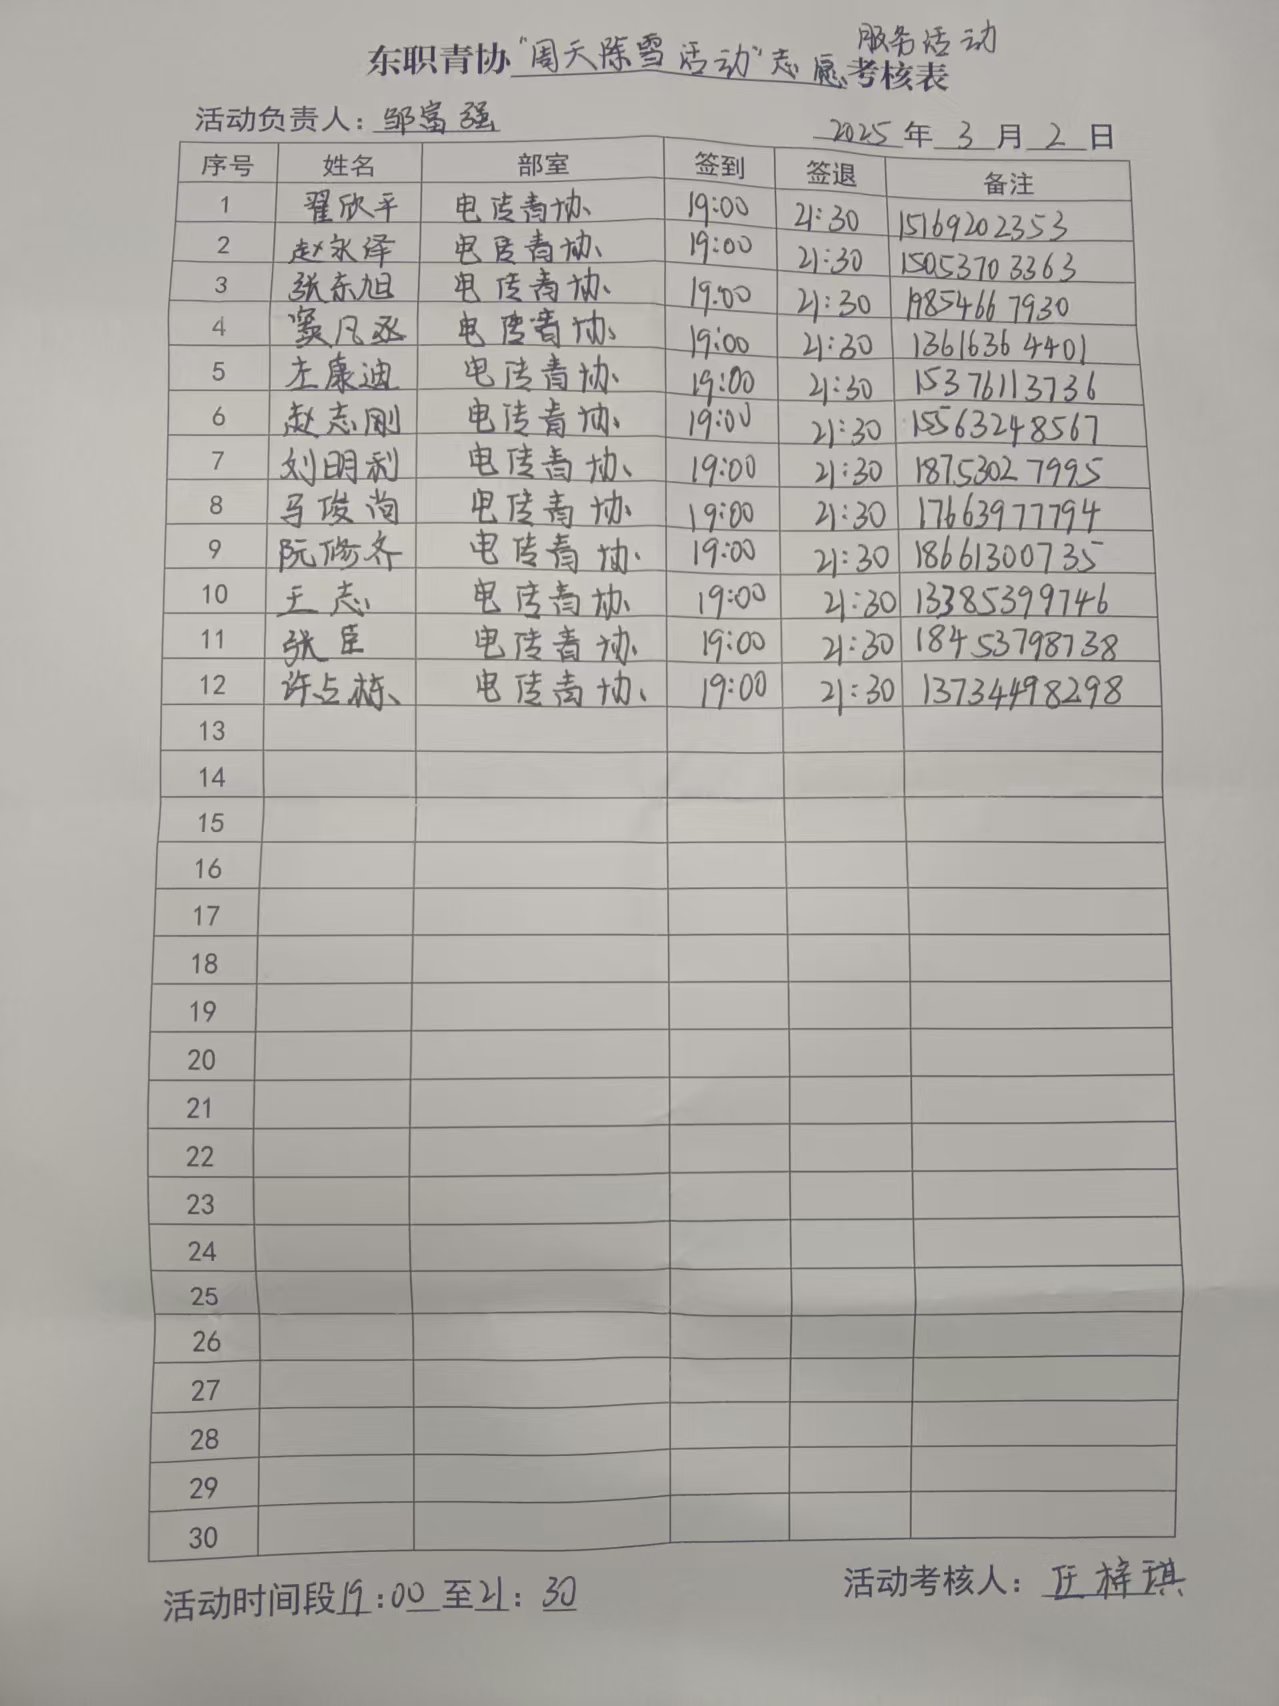 服务活动
东职青协“周天除雪活动”志愿考核表
活动负责人：邹富强 2025年3月2日
序号 姓名 部室 签到 签退 备注
1 翟欣平 电传青协 19:00 21:30 15169202353
2 赵永泽 电传青协 19:00 21:30 15053703363
3 张东旭 电传青协 19:00 21:30 19854667930
4 窦凡丞 电传青协 19:00 21:30 13616364401
5 左康迪 电传青协 19:00 21:30 15376113736
6 赵志刚 电传青协 19:00 21:30 15563248567
7 刘明利 电传青协 19:00 21:30 18753027995
8 马俊尚 电传青协 19:00 21:30 17663977794
9 阮修齐 电传青协 19:00 21:30 18661300735
10 王志 电传青协 19:00 21:30 13385399746
11 张臣 电传青协 19:00 21:30 18453798738
12 许占栋 电传青协 19:00 21:30 13734498298
13
14
15
16
17
18
19
20
21
22
23
24
25
26
27
28
29
30
活动时间段19:00至21:30 活动考核人：任梓琪